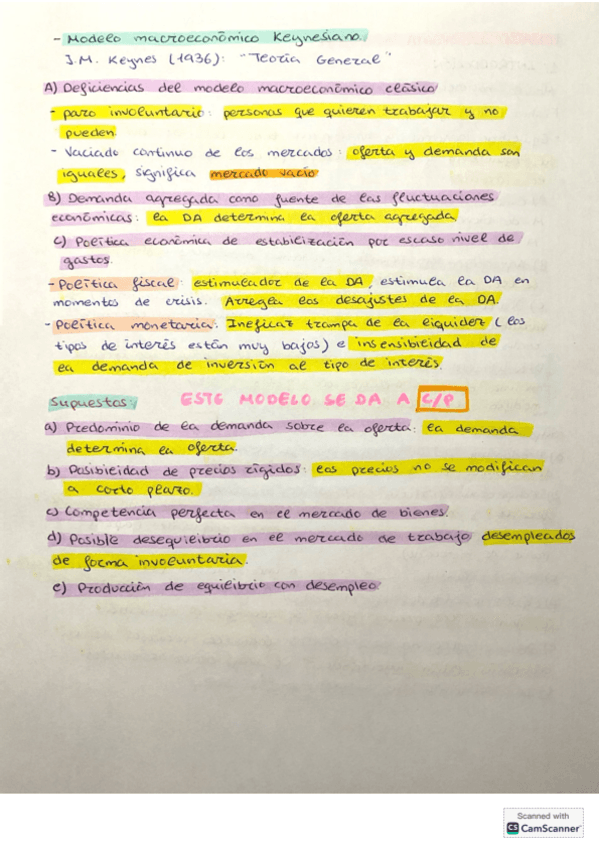 - Modelo macroeconómico Keynesiano.
J.M. Keynes (1936): "Teoría General"
A) Deficiencias del modelo macroeconómico clásico
- paro involuntario: personas que quieren trabajar y no
pueden.
- Vaciado continuo de los mercados: oferta y demanda son
iguales, significa mercado vacío
B) Demanda agregada como fuente de las fluctuaciones
económicas: la DA determina la oferta agregada
C) Política económica de estabilización por escaso nivel de
gastos.
- Política fiscal: estimulador de la DA, estimula la DA en
momentos de crisis. Arregla los desajustes de la DA.
- Política monetaria: Ineficaz trampa de la liquidez (los
tipos de interés están muy bajos) e insensibilidad de
la demanda de inversión al tipo de interés.
Supuestos: ESTE MODELO SE DA A C/P
a) Predominio de la demanda sobre la oferta: la demanda
determina la oferta.
b) Posibilidad de precios rígidos: los precios no se modifican
a corto plazo.
c) Competencia perfecta en el mercado de bienes.
d) Posible desequilibrio en el mercado de trabajo desempleados
de forma involuntaria.
e) Producción de equilibrio con desempleo.
Scanned with
CS CamScanner